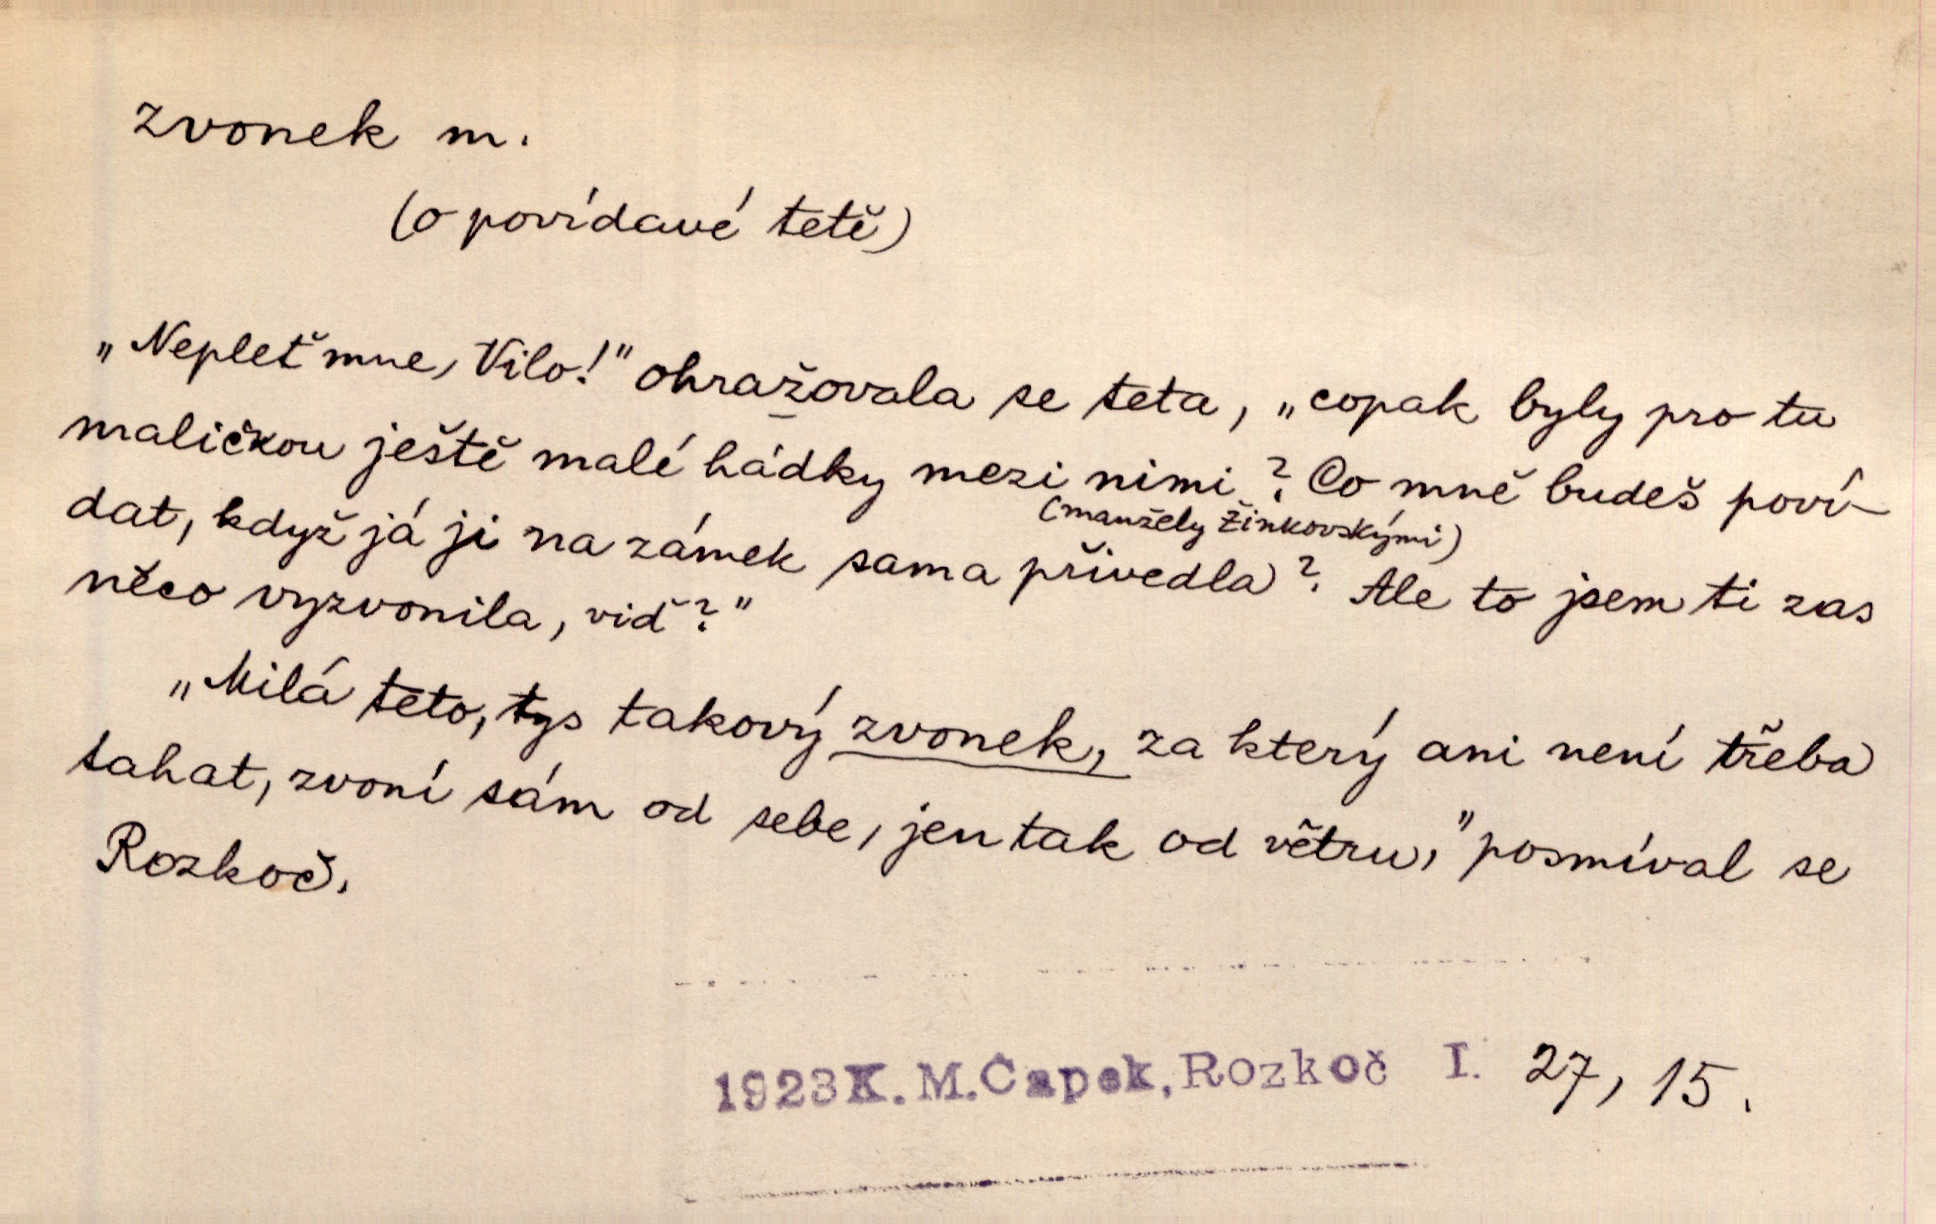 zvonek m.
(o povídavé tetě)
„Nepleť mne, Vilo!" ohražovala se teta, „copak byly pro tu
maličkou ještě malé hádky mezi nimi ? Co mně budeš poví-
(manžely Žinkovskými)
dat, když já ji na zámek sama přivedla ? Ale to jsem ti zas
něco vyzvonila, viď ?"
„Milá teto, tys takový zvonek, za který ani není třeba
tahat, zvoní sám od sebe, jen tak od větru," posmíval se
Rozkoč.
1923 K. M. Čapek, Rozkoč I. 27, 15.